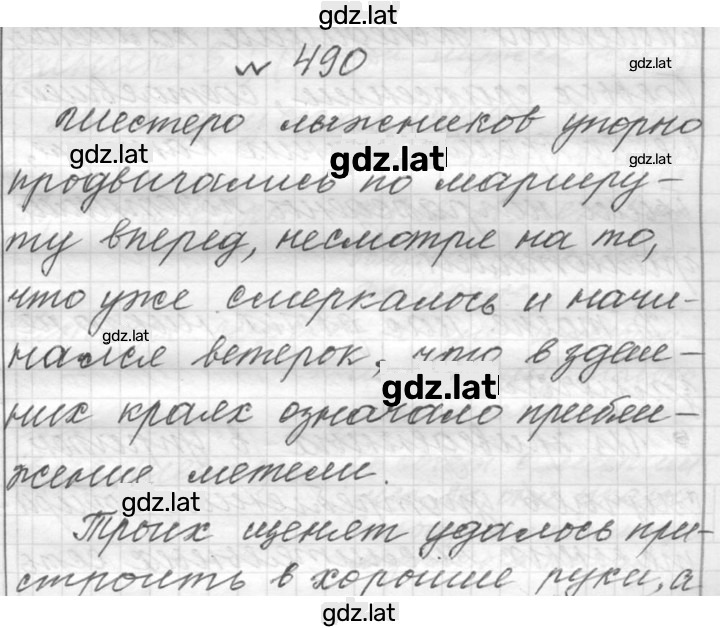 gdz.lat
№ 490
gdz.lat
Шестеро лыжников упорно
gdz.lat
gdz.lat
gdz.lat
продвигались по маршру-
ту вперед, несмотря на то,
что уже смеркалось и начи-
gdz.lat
нался ветерок, что в здеш-
gdz.lat
них краях означало приближ-
жение метели.
gdz.lat
Троих щенят удалось при-
строить в хорошие руки, а
gdz.lat